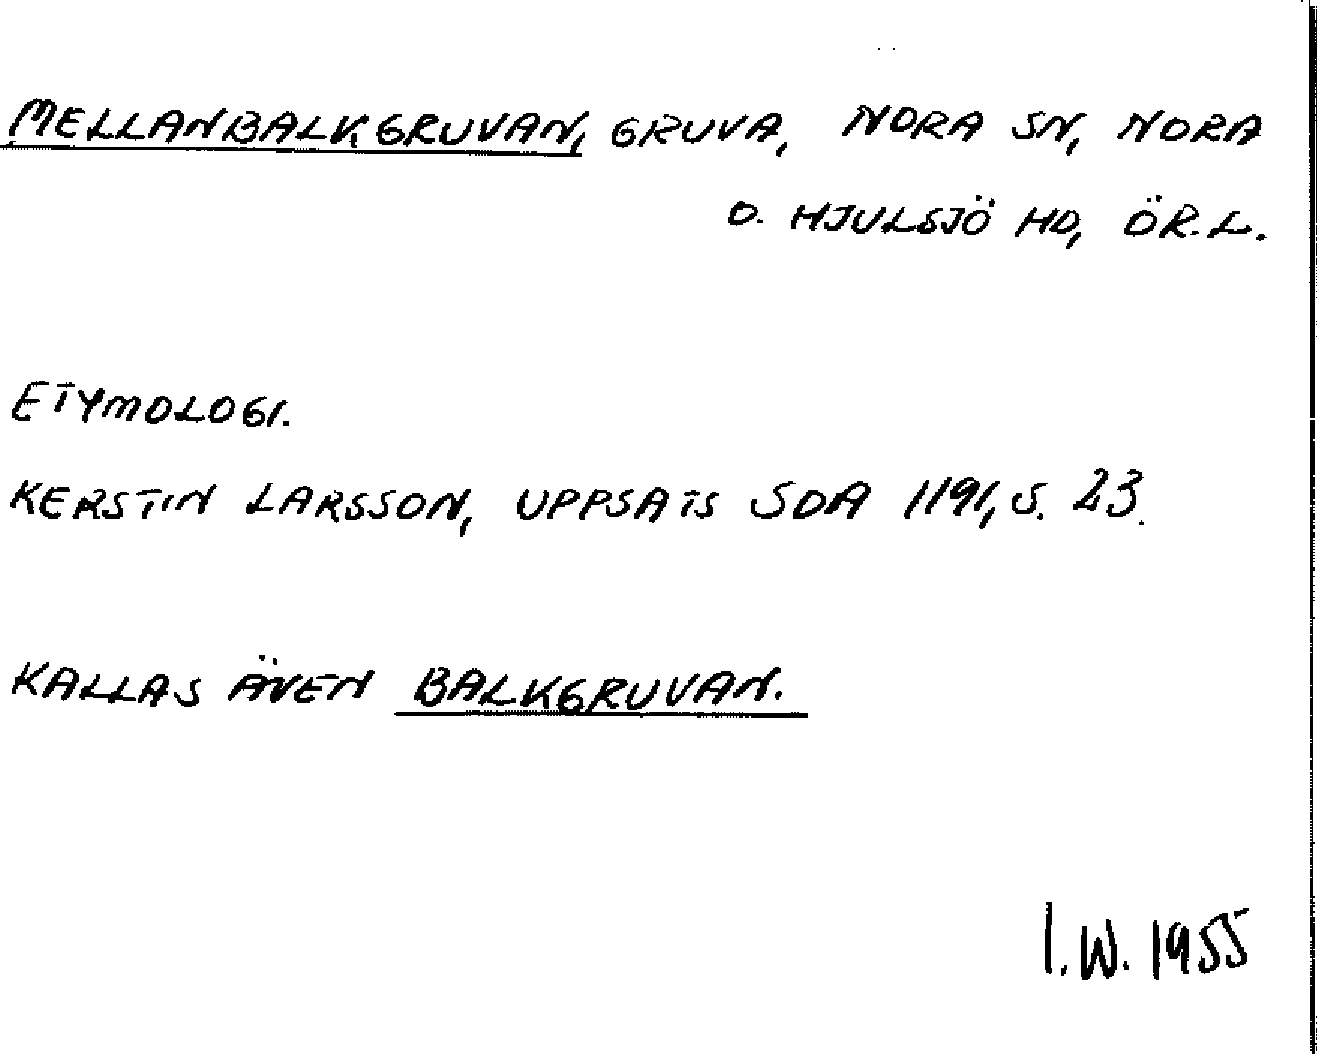 MELLANBALKGRUVAN, GRUVA, NORA SN, NORA
O. HJULSJÖ HD, ÖR.L.
ETYMOLOGI.
KERSTIN LARSSON, UPPSATS SOA 1191, S. 23.
KALLAS ÄVEN BALKGRUVAN.
I.W. 1955